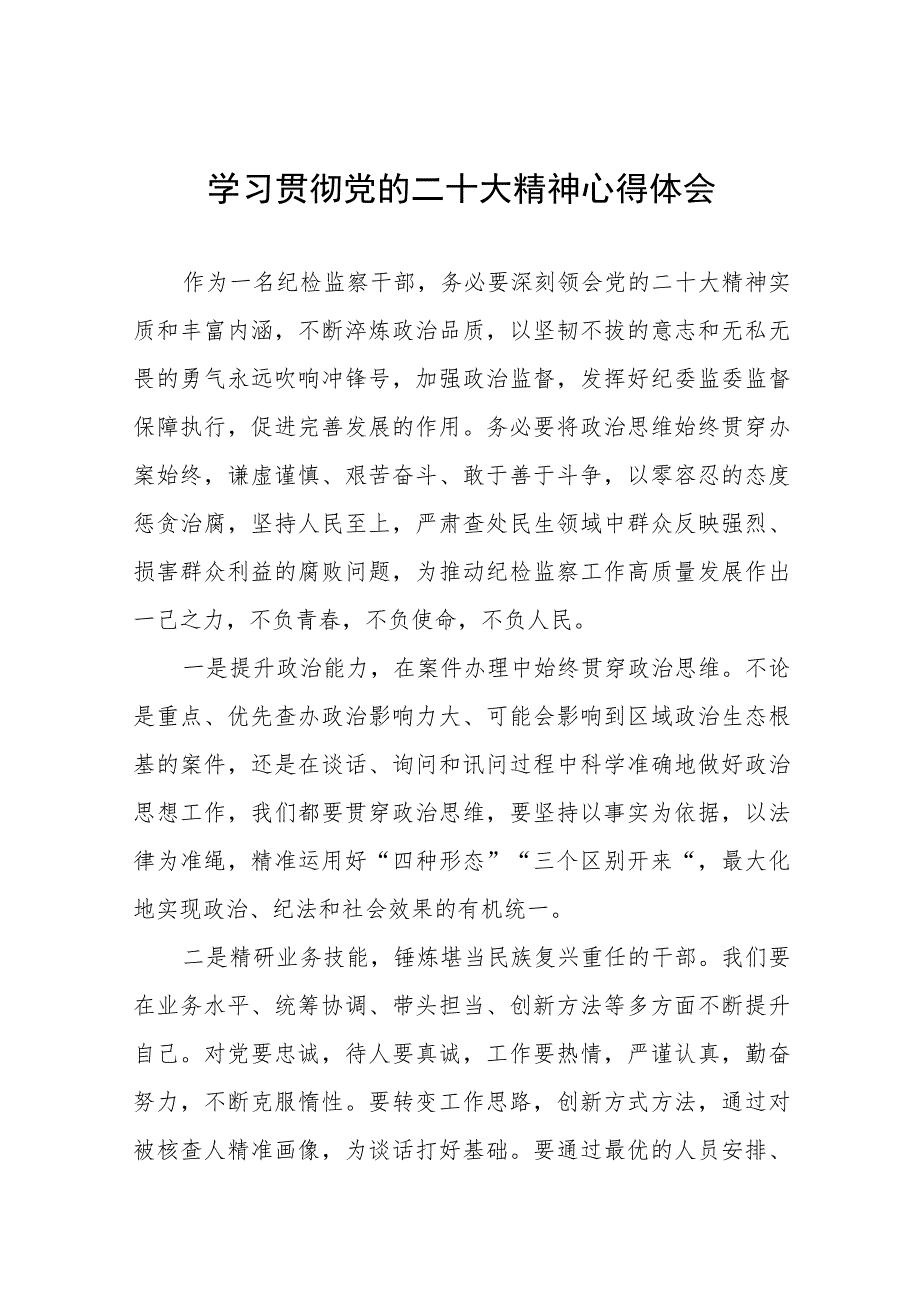 学习贯彻党的二十大精神心得体会
作为一名纪检监察干部，务必要深刻领会党的二十大精神实
质和丰富内涵，不断淬炼政治品质，以坚韧不拔的意志和无私无
畏的勇气永远吹响冲锋号，加强政治监督，发挥好纪委监委监督
保障执行，促进完善发展的作用。务必要将政治思维始终贯穿办
案始终，谦虚谨慎、艰苦奋斗、敢于善于斗争，以零容忍的态度
惩贪治腐，坚持人民至上，严肃查处民生领域中群众反映强烈、
损害群众利益的腐败问题，为推动纪检监察工作高质量发展作出
一己之力，不负青春，不负使命，不负人民。
一是提升政治能力，在案件办理中始终贯穿政治思维。不论
是重点、优先查办政治影响力大、可能会影响到区域政治生态根
基的案件，还是在谈话、询问和讯问过程中科学准确地做好政治
思想工作，我们都要贯穿政治思维，要坚持以事实为依据，以法
律为准绳，精准运用好“四种形态”“三个区别开来“，最大化
地实现政治、纪法和社会效果的有机统一。
二是精研业务技能，锤炼堪当民族复兴重任的干部。我们要
在业务水平、统筹协调、带头担当、创新方法等多方面不断提升
自己。对党要忠诚，待人要真诚，工作要热情，严谨认真，勤奋
努力，不断克服惰性。要转变工作思路，创新方式方法，通过对
被核查人精准画像，为谈话打好基础。要通过最优的人员安排、